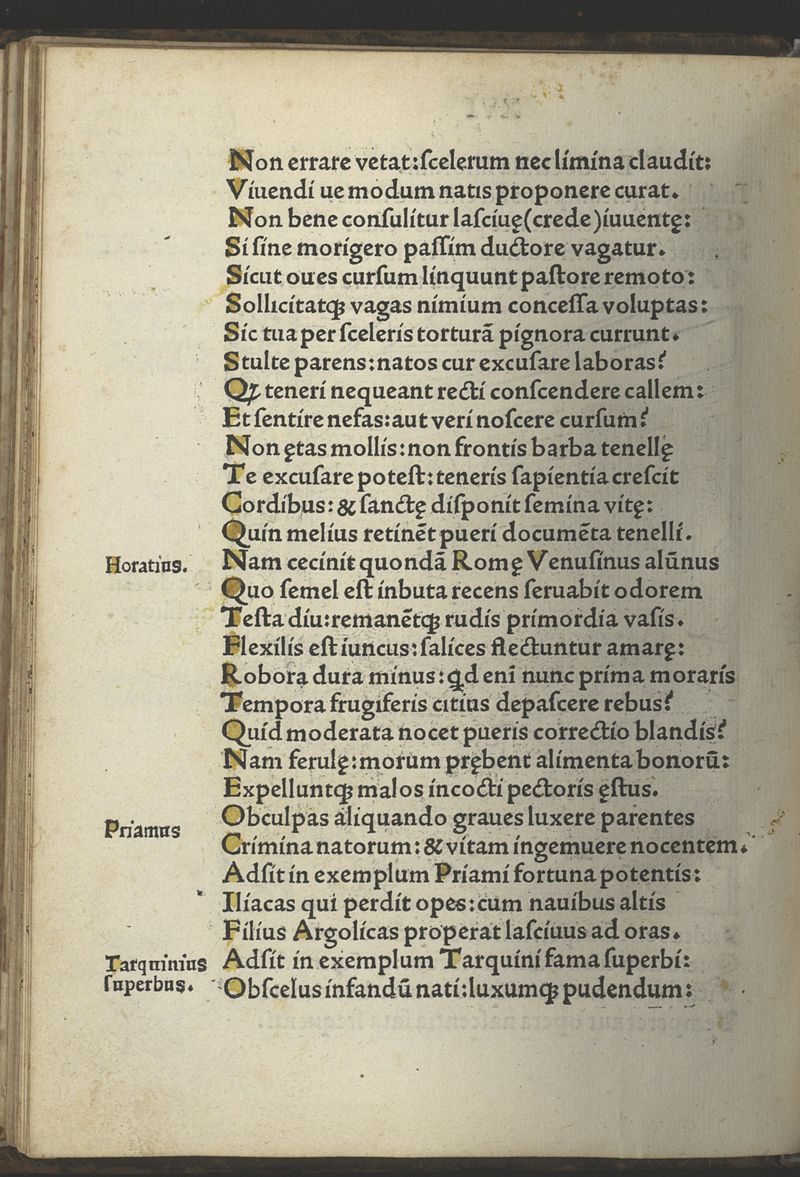 Non errare vetat:ſcelerum nec limina claudit:
Viuendi ue modum natis proponere curat.
Non bene conſulitur laſciuę(crede)iuuentę:
Si ſine morigero paſſim ductore vagatur.
Sicut oues curſum linquunt paſtore remoto:
Sollicitatꝗ vagas nimium conceſſa voluptas:
Sic tua per ſceleris torturā pignora currunt.
Stulte parens:natos cur excuſare laboras?
Qꝫ teneri nequeant recti conſcendere callem:
Et ſentire nefas:aut veri noſcere curſum?
Non ętas mollis:non frontis barba tenellę
Te excuſare poteſt:teneris ſapientia creſcit
Cordibus:& ſanctę diſponit ſemina vitę:
Quin melius retinēt pueri documēta tenelli.
Horatius. Nam cecinit quondā Romę Venuſinus alūnus
Quo ſemel eſt inbuta recens ſeruabit odorem
Teſta diu:remanētꝗ rudis primordia vaſis.
Flexilis eſt iuncus:ſalices flectuntur amarę:
Robora dura minus:qd enī nunc prima moraris
Tempora frugiferis citius depaſcere rebus?
Quid moderata nocet pueris correctio blandis?
Nam ferulę:morum prębent alimenta bonorū:
Expelluntꝗ malos incocti pectoris ęſtus.
Obculpas aliquando graues luxere parentes
Priamus Crimina natorum:& vitam ingemuere nocentem.
Adſit in exemplum Priami fortuna potentis:
Iliacas qui perdit opes:cum nauibus altis
Filius Argolicas properat laſciuus ad oras.
Tarquinius Adſit in exemplum Tarquini fama ſuperbi:
ſuperbus. Obſcelus infandū nati:luxumꝗ pudendum: